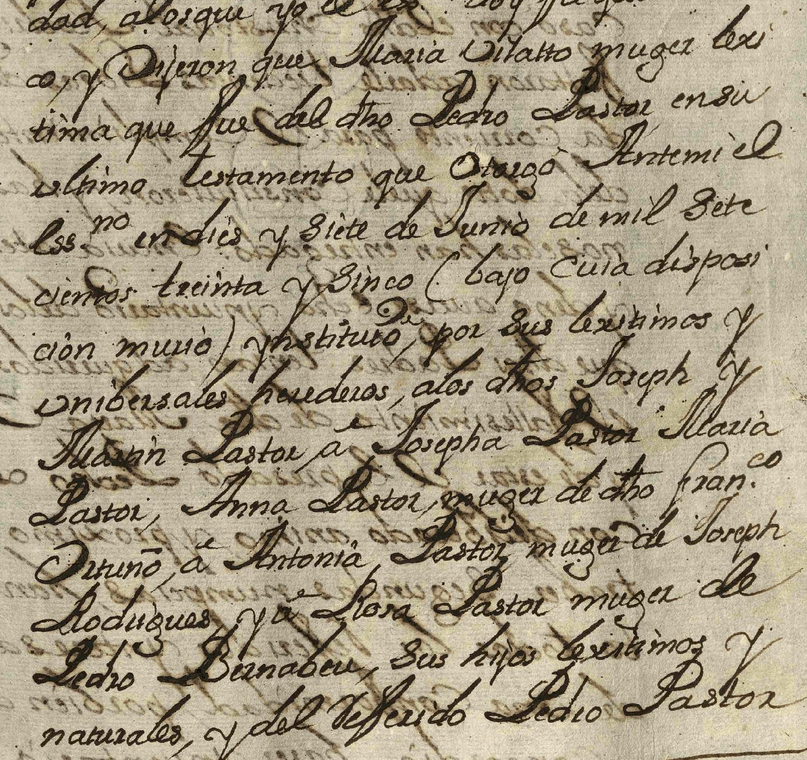 dad, alos que yo el es.no doy fe que
co, y Dijeron que Maria Vilatto muger lexi
tima que fue del dho Pedro Pastor en su
ultimo testamento que Otorgò Antemi el
Ess.no en dies y Siete de Junio de mil Sete
cientos treinta y Sinco (bajo Cuia disposi
ción murio) ynstituiò, por sus lexitimos y
vnibersales herederos, alos dhos Joseph y
Martin Pastor, â Josepha Pastor Maria
Pastor, Anna Pastor, muger de dho fran.co
Ortuño, â Antonia Pastor muger de Joseph
Rodrigues, y â Rosa Pastor muger de
Pedro Bernabeu, sus hijos lexitimos y
naturales, y del Refferido Pedro Pastor